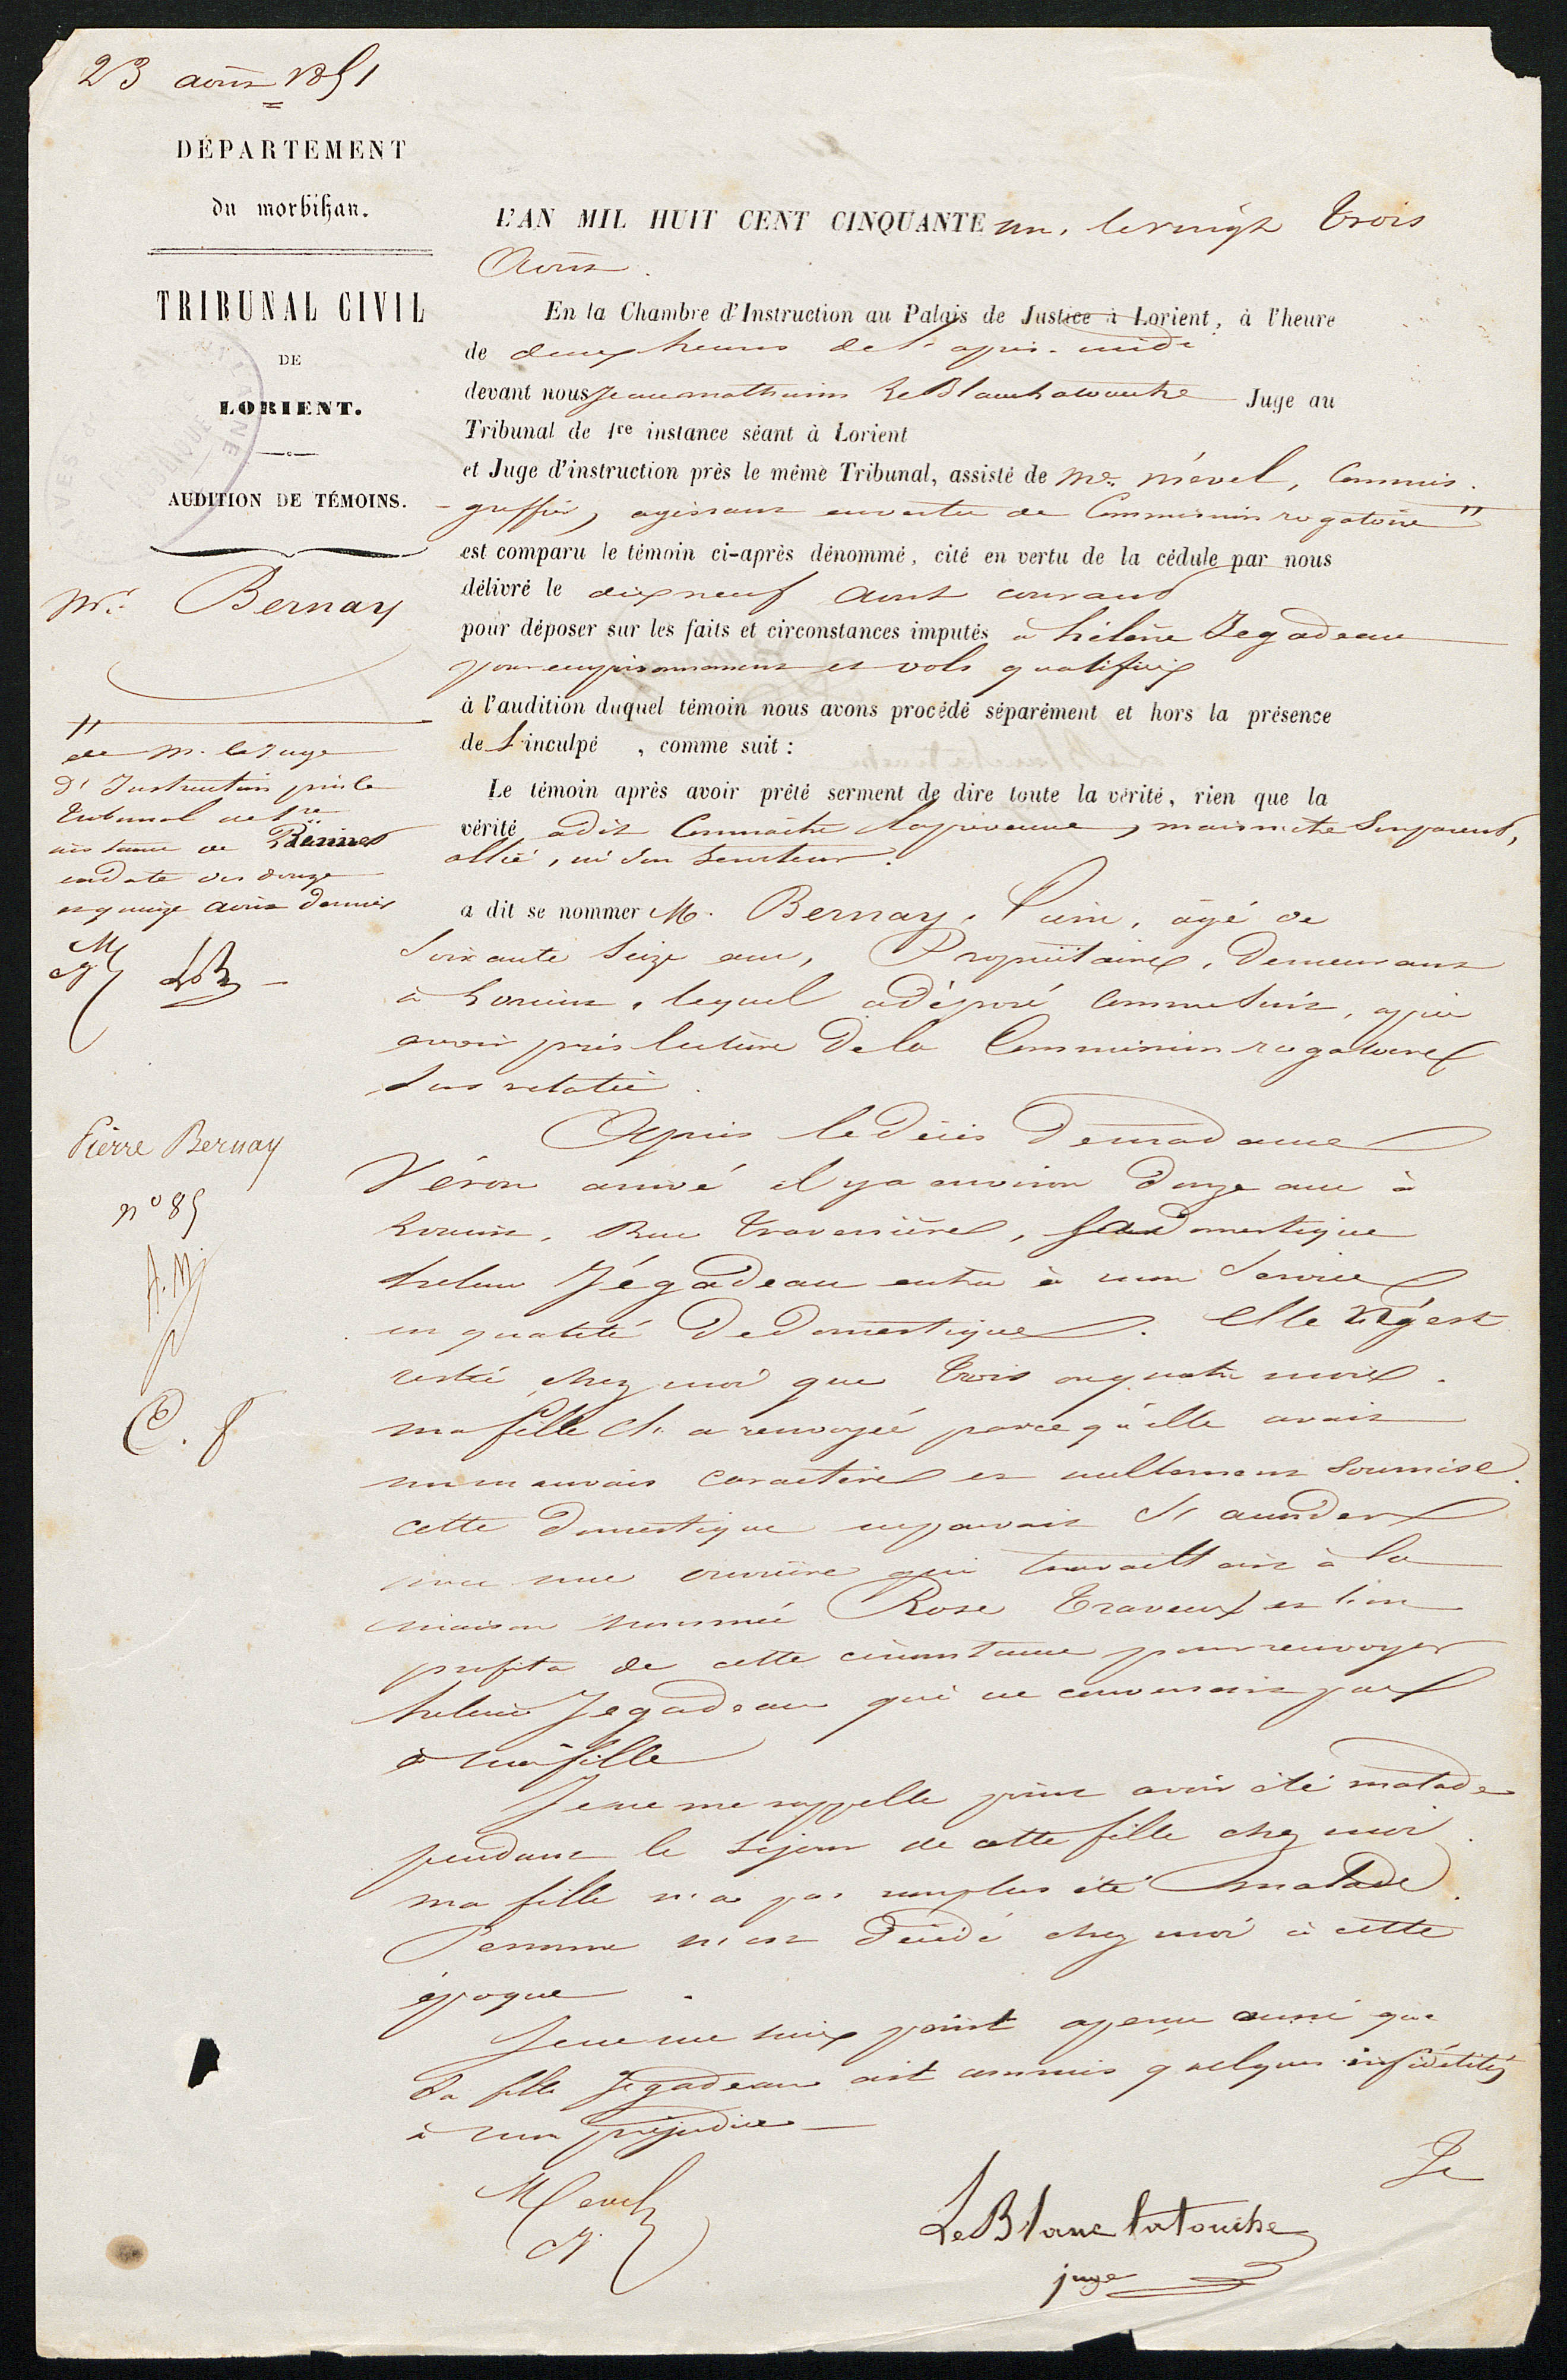 23 août 1851
DÉPARTEMENT
du morbihan.
TRIBUNAL CIVIL
DE
LORIENT.
AUDITION DE TÉMOINS.
Mr. Bernay
"
de M. le Juge
D'Instruction près le
Tribunal de 1re
instance de Rennes
en date des douze
et quinze août dernier
Pierre Bernay
n° 85
A. M.
C. 8
L'AN MIL HUIT CENT CINQUANTE un, le vingt trois
Août.
En la Chambre d'Instruction au Palais de Justice à Lorient, à l'heure
de deux heures de l'après-midi
devant nous Jean mathurin Le Blanc Latouche Juge au
Tribunal de 1re instance séant à Lorient
et Juge d'instruction près le même Tribunal, assisté de Me. Mével, Commis
greffier, agissant en vertu de Commission rogatoire "
est comparu le témoin ci-après dénommé, cité en vertu de la cédule par nous
délivré le dix neuf Aout courant
pour déposer sur les faits et circonstances imputés à hélène Jegadeau
pour empoisonnement et vols qualifiés
à l'audition duquel témoin nous avons procédé séparément et hors la présence
de L'inculpé , comme suit :
Le témoin après avoir prêté serment de dire toute la vérité, rien que la
vérité a dit Connaître la prévenue, mais n'être Son parent,
allié, ni Son Serviteur.
a dit se nommer M. Bernay, âgé de
Soixante Seize ans, Propriétaire, Demeurant
à Lorient, lequel a déposé Comme Suit, après
avoir pris lecture De la Commission rogatoire
Sus relatée.
Après le décès De madame
Véron arrivé il y a environ Douze ans à
Lorient, Rue traversière, Sa domestique
helene Jégadeau entra à mon Service
en qualité De Domestique. Elle n'y est
restée chez moi que trois ou quatre mois.
ma fille l'a renvoyée parce qu'elle avait
un mauvais caractère et nullement Soumise.
cette Domestique ne pouvait S'accorder
avec une ouvrière qui travaillait à la
maison nommée Rose Traveux et l'on
profita de cette circonstance pour renvoyer
helene Jegadeau qui ne convenait pas
à ma fille
Je ne me rappelle point avoir été malade
pendant le Séjour de cette fille chez moi.
ma fille n'a pas non plus été malade.
Personne n'est Décédé chez moi à cette
époque.
Je ne me suis point aperçu aussi que
La fille Jegadeau ait commis quelques infidélités
à mon préjudice
Je
Mevel
Le Blanc latouche
juge